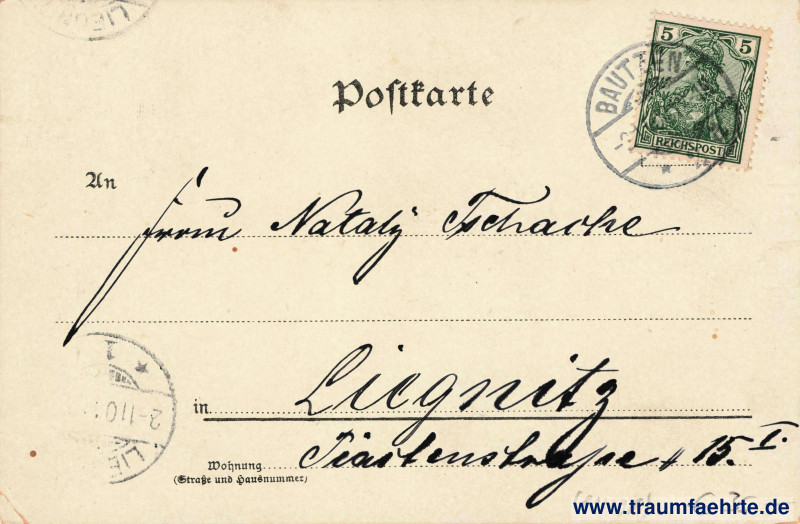 LIEGN
5 5
REICHSPOST
BAUTZEN
Postkarte
An
Frau Nataly Tschache
in Liegnitz
Wohnung Piastenstraße 15 I.
(Straße und Hausnummer)
1
2-11 0
LIE
www.traumfaehrte.de